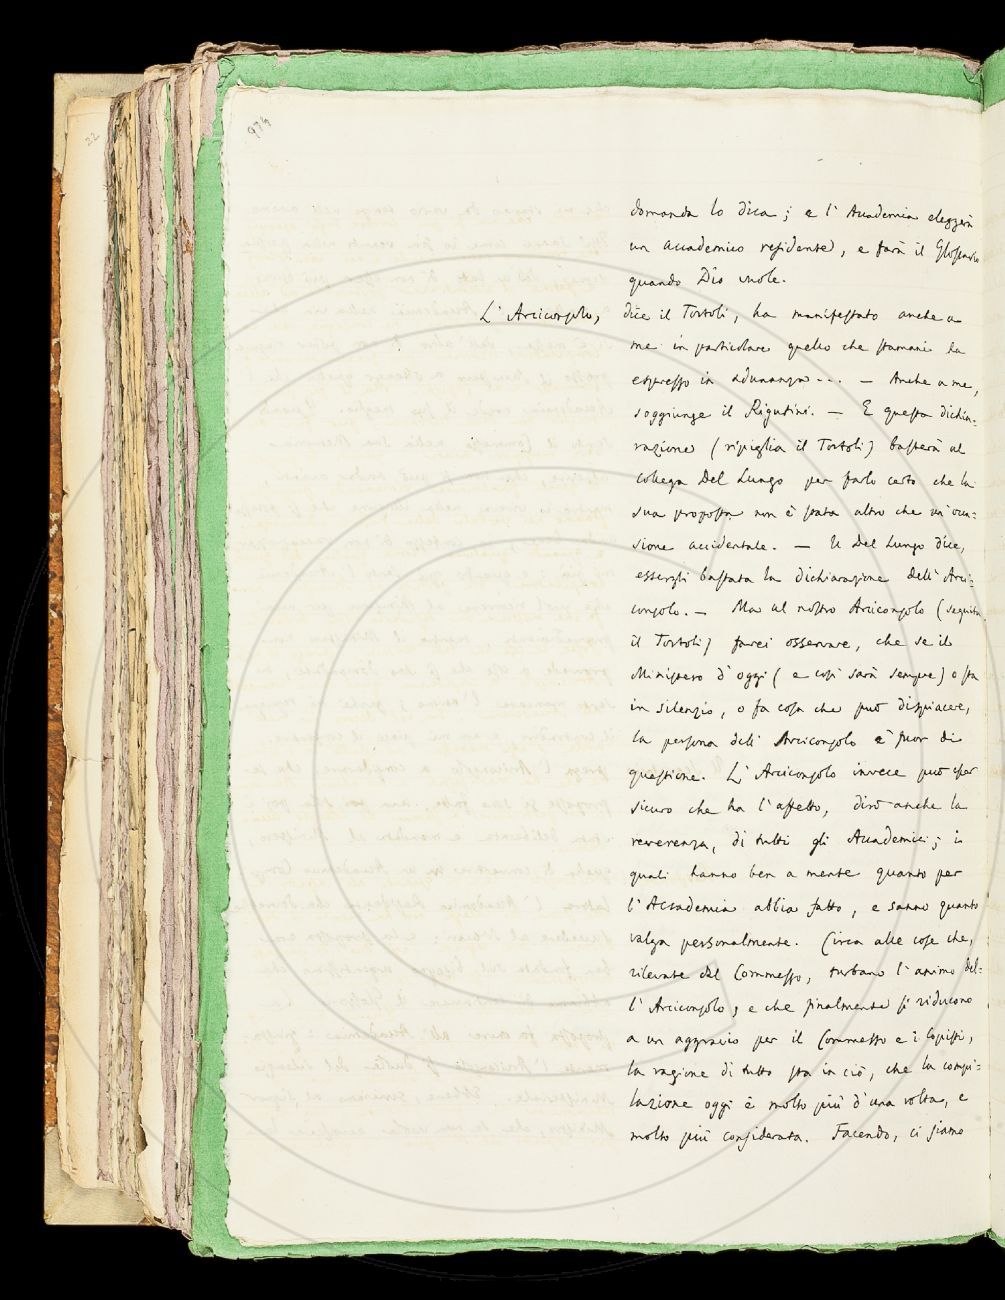 22
974
domanda lo dica; e l'Accademia eleggerà
un accademico residente, e farà il Glossario
quando Dio vuole.
L'Arciconsolo, dice il Tortoli, ha manifestato anche a
me in particolare quello che stamani ha
espresso in adunanza... — Anche a me,
soggiunge il Rigutini. — E questa dichia-
razione (ripiglia il Tortoli) basterà al
collega Del Lungo per farlo certo che la
sua proposta non è stata altro che un'occa-
sione accidentale. — Il Del Lungo dice,
essergli bastata la dichiarazione dell'Arci-
consolo. — Ma al nostro Arciconsolo (seguita
il Tortoli) farei osservare, che se il
Ministero d'oggi (e così sarà sempre) o sta
in silenzio, o fa cosa che può dispiacere,
la persona dell'Arciconsolo è fuor di
questione. L'Arciconsolo invece può esser
sicuro che ha l'affetto, dirò anche la
reverenza, di tutti gli Accademici; i
quali hanno ben a mente quanto per
l'Accademia abbia fatto, e sanno quanto
valga personalmente. Circa alle cose che,
rilevate dal Commesso, turbano l'animo del-
l'Arciconsolo, e che finalmente si riducono
a un aggravio per il Commesso e i Copisti,
la ragione di tutto sta in ciò, che la compi-
lazione oggi è molto più d'una volta, e
molto più considerata. Facendo, ci siamo